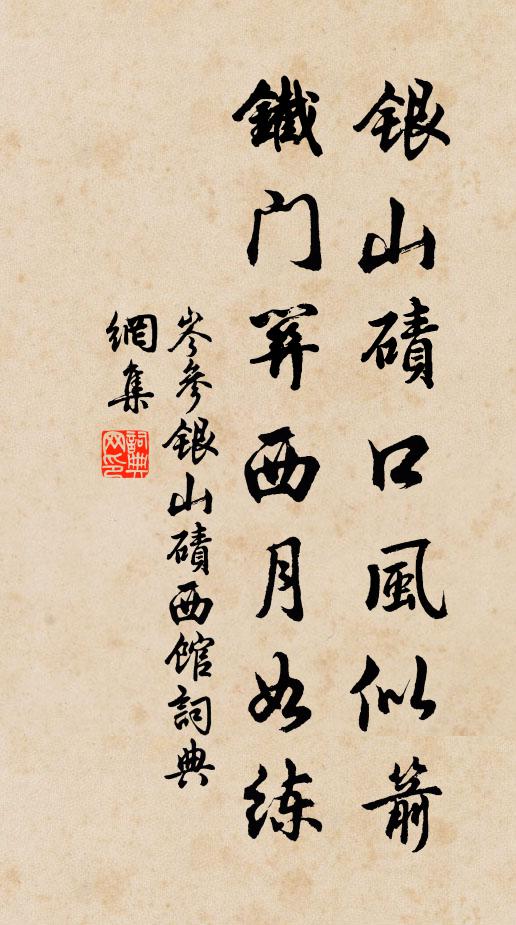 银山磧口風似箭
鐵门关西月如练
岑參银山磧西馆詞典
網集
詞典网印